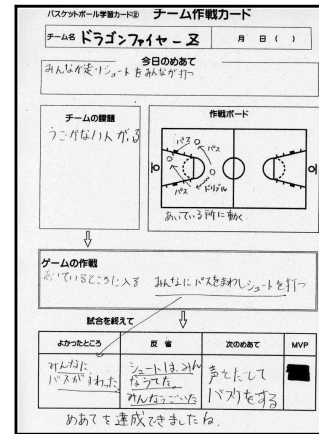 バスケットボール学習カード② チーム作戦カード
チーム名 ドラゴンファイヤーZ 月 日 ( )
今日のめあて
みんなが走りシュートをみんなが打つ
チームの課題
うごかない人がいる
作戦ボード
パス
パス
パス
ドリブル
あいている所に動く
ゲームの作戦
あいているところに入る みんなにパスをまわしシュートを打つ
試合を終えて
よかったところ 反省 次のめあて MVP
みんなに
パスがまわった
シュートは、みん
なうてた。
みんなうごいた
声をだして
パスをする
めあてを達成できましたね。